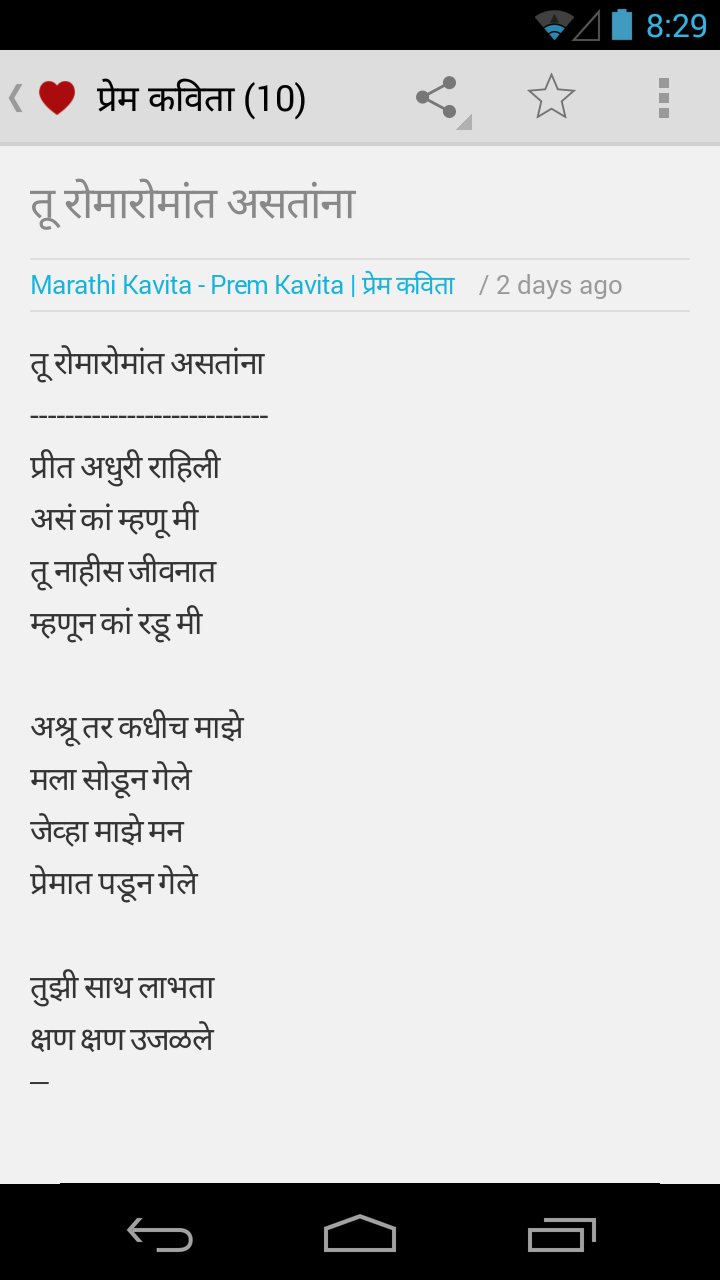 8:29
प्रेम कविता (10)
तू रोमारोमांत असतांना
Marathi Kavita - Prem Kavita | प्रेम कविता / 2 days ago
तू रोमारोमांत असतांना
---------------------------
प्रीत अधुरी राहिली
असं कां म्हणू मी
तू नाहीस जीवनात
म्हणून कां रडू मी
अश्रू तर कधीच माझे
मला सोडून गेले
जेव्हा माझे मन
प्रेमात पडून गेले
तुझी साथ लाभता
क्षण क्षण उजळले